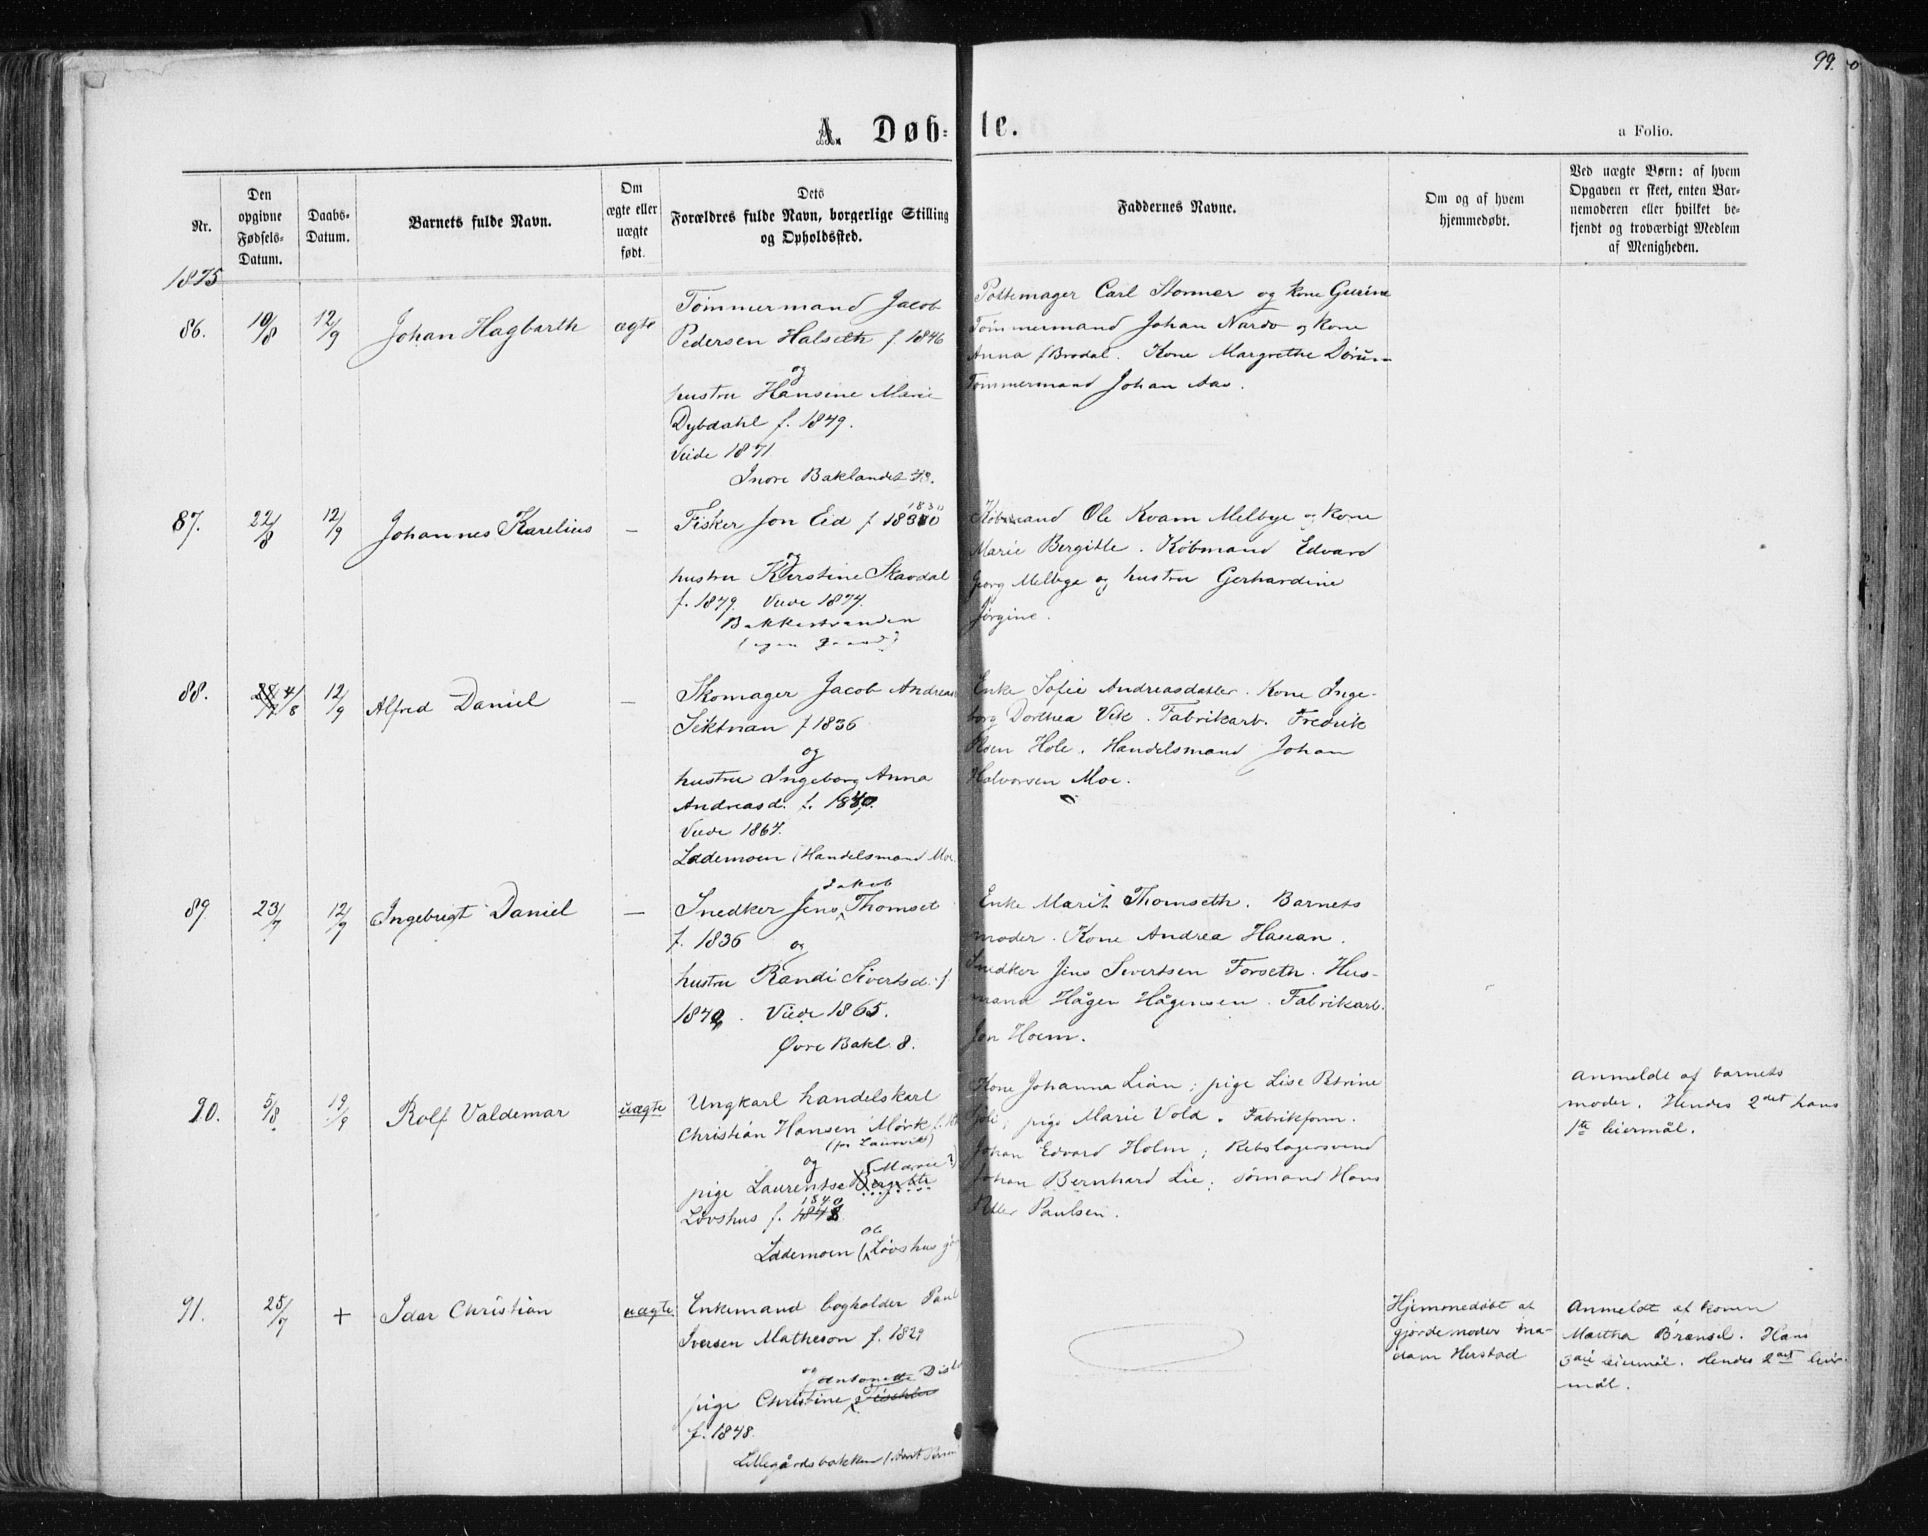 99.
A. Døbte.
a Folio.
Nr.
Den opgivne Fødsels-Datum.
Daabs-Datum.
Barnets fulde Navn.
Om ægte eller uægte født.
Dets Forældres fulde Navn, borgerlige Stilling og Opholdssted.
Faddernes Navne.
Om og af hvem hjemmedøbt.
Ved uægte Børn: af hvem Opgaven er skeet, enten Barnemoderen eller hvilket bekjendt og troværdigt Medlem af Menigheden.
1875
86. 10/8 12/9 Johan Hagbarth ægte
Tømmermand Jacob
Pedersen Halseth f 1846
og
hustru Hansine Marie
Dybdahl f. 1849.
Viede 1871
Indre Baklandet 43.
Pottemager Carl Stormer og kone Gurine
Tømmermand Johan Nardo og kone
Anna f Brodal. Kone Margrethe Dørum
Tømmermand Johan Aas.
87. 22/8 12/9 Johannes Karelius —
1830
Fisker Jon Eid f
og
hustru Kirstine Skavdal
f. 1849. Viede 1874.
Bakkestranden
(egen gaard)
Købmand Ole Kvam Melbye og kone
Marie Bergitte. Købmand Edvard
Georg Melbye og hustru Gerhardine
Jørgine.
88. 4/8 12/9 Alfred Daniel —
Skomager Jacob Andreas
Sektnan f 1836
og
hustru Ingeborg Anna
Andreasd. f. 1840.
Viede 1867.
Lademoen (Handelsmand Moe
Enke Sofie Andreasdatter. Kone Inge-
borg Dorthea Vik. Fabrikarb. Fredrik
Olsen Hole. Handelsmand Johan
Halvorsen Moe.
89 23/7 12/9 Ingebrigt Daniel —
Jakob
Snedker Jens Thomset
f. 1836
og
hustru Randi Sivertsd. f
1840. Viede 1865.
Øvre Bakl. 8.
Enke Marit Thomseth. Barnets
moder. Kone Andrea Hasan.
Snedker Jens Sivertsen Forseth. Hus-
mand Hågen Hågensen. Fabrikarb.
Jon Hoem.
90. 5/8 19/9 Rolf Valdemar uægte
Ungkarl handelskarl
Christian Hansen Mørk f.
(for Laurvik)
og
(Marie?)
pige Laurentse Bergitte
1840
Løvshus f. 1848
Ole
Lademoen (Løvshus gård
Kone Johanna Lian; pige Lise Petrine
Lie; pige Marie Vold. Fabrikform.
Johan Edvard Holm; Rebslagersvend
Johan Bernhard Lie; sømand Hans
Peter Paulsen.
Anmeldt af barnets
moder. Hendes 2det hans
1ste leiermål.
91. 25/7 + Idar Christian uægte
Enkemand bogholder Paul
Iversen Matheson f. 1829
og
Antonette
pige Christine
f. 1848.
Lillegårdsbakken
Hjemmedøbt af
gjordemoder ma-
dam Herstad
Anmeldt af konen
Martha Brænsel. Hans
3die leiermål. Hendes 2det leier-
mål.